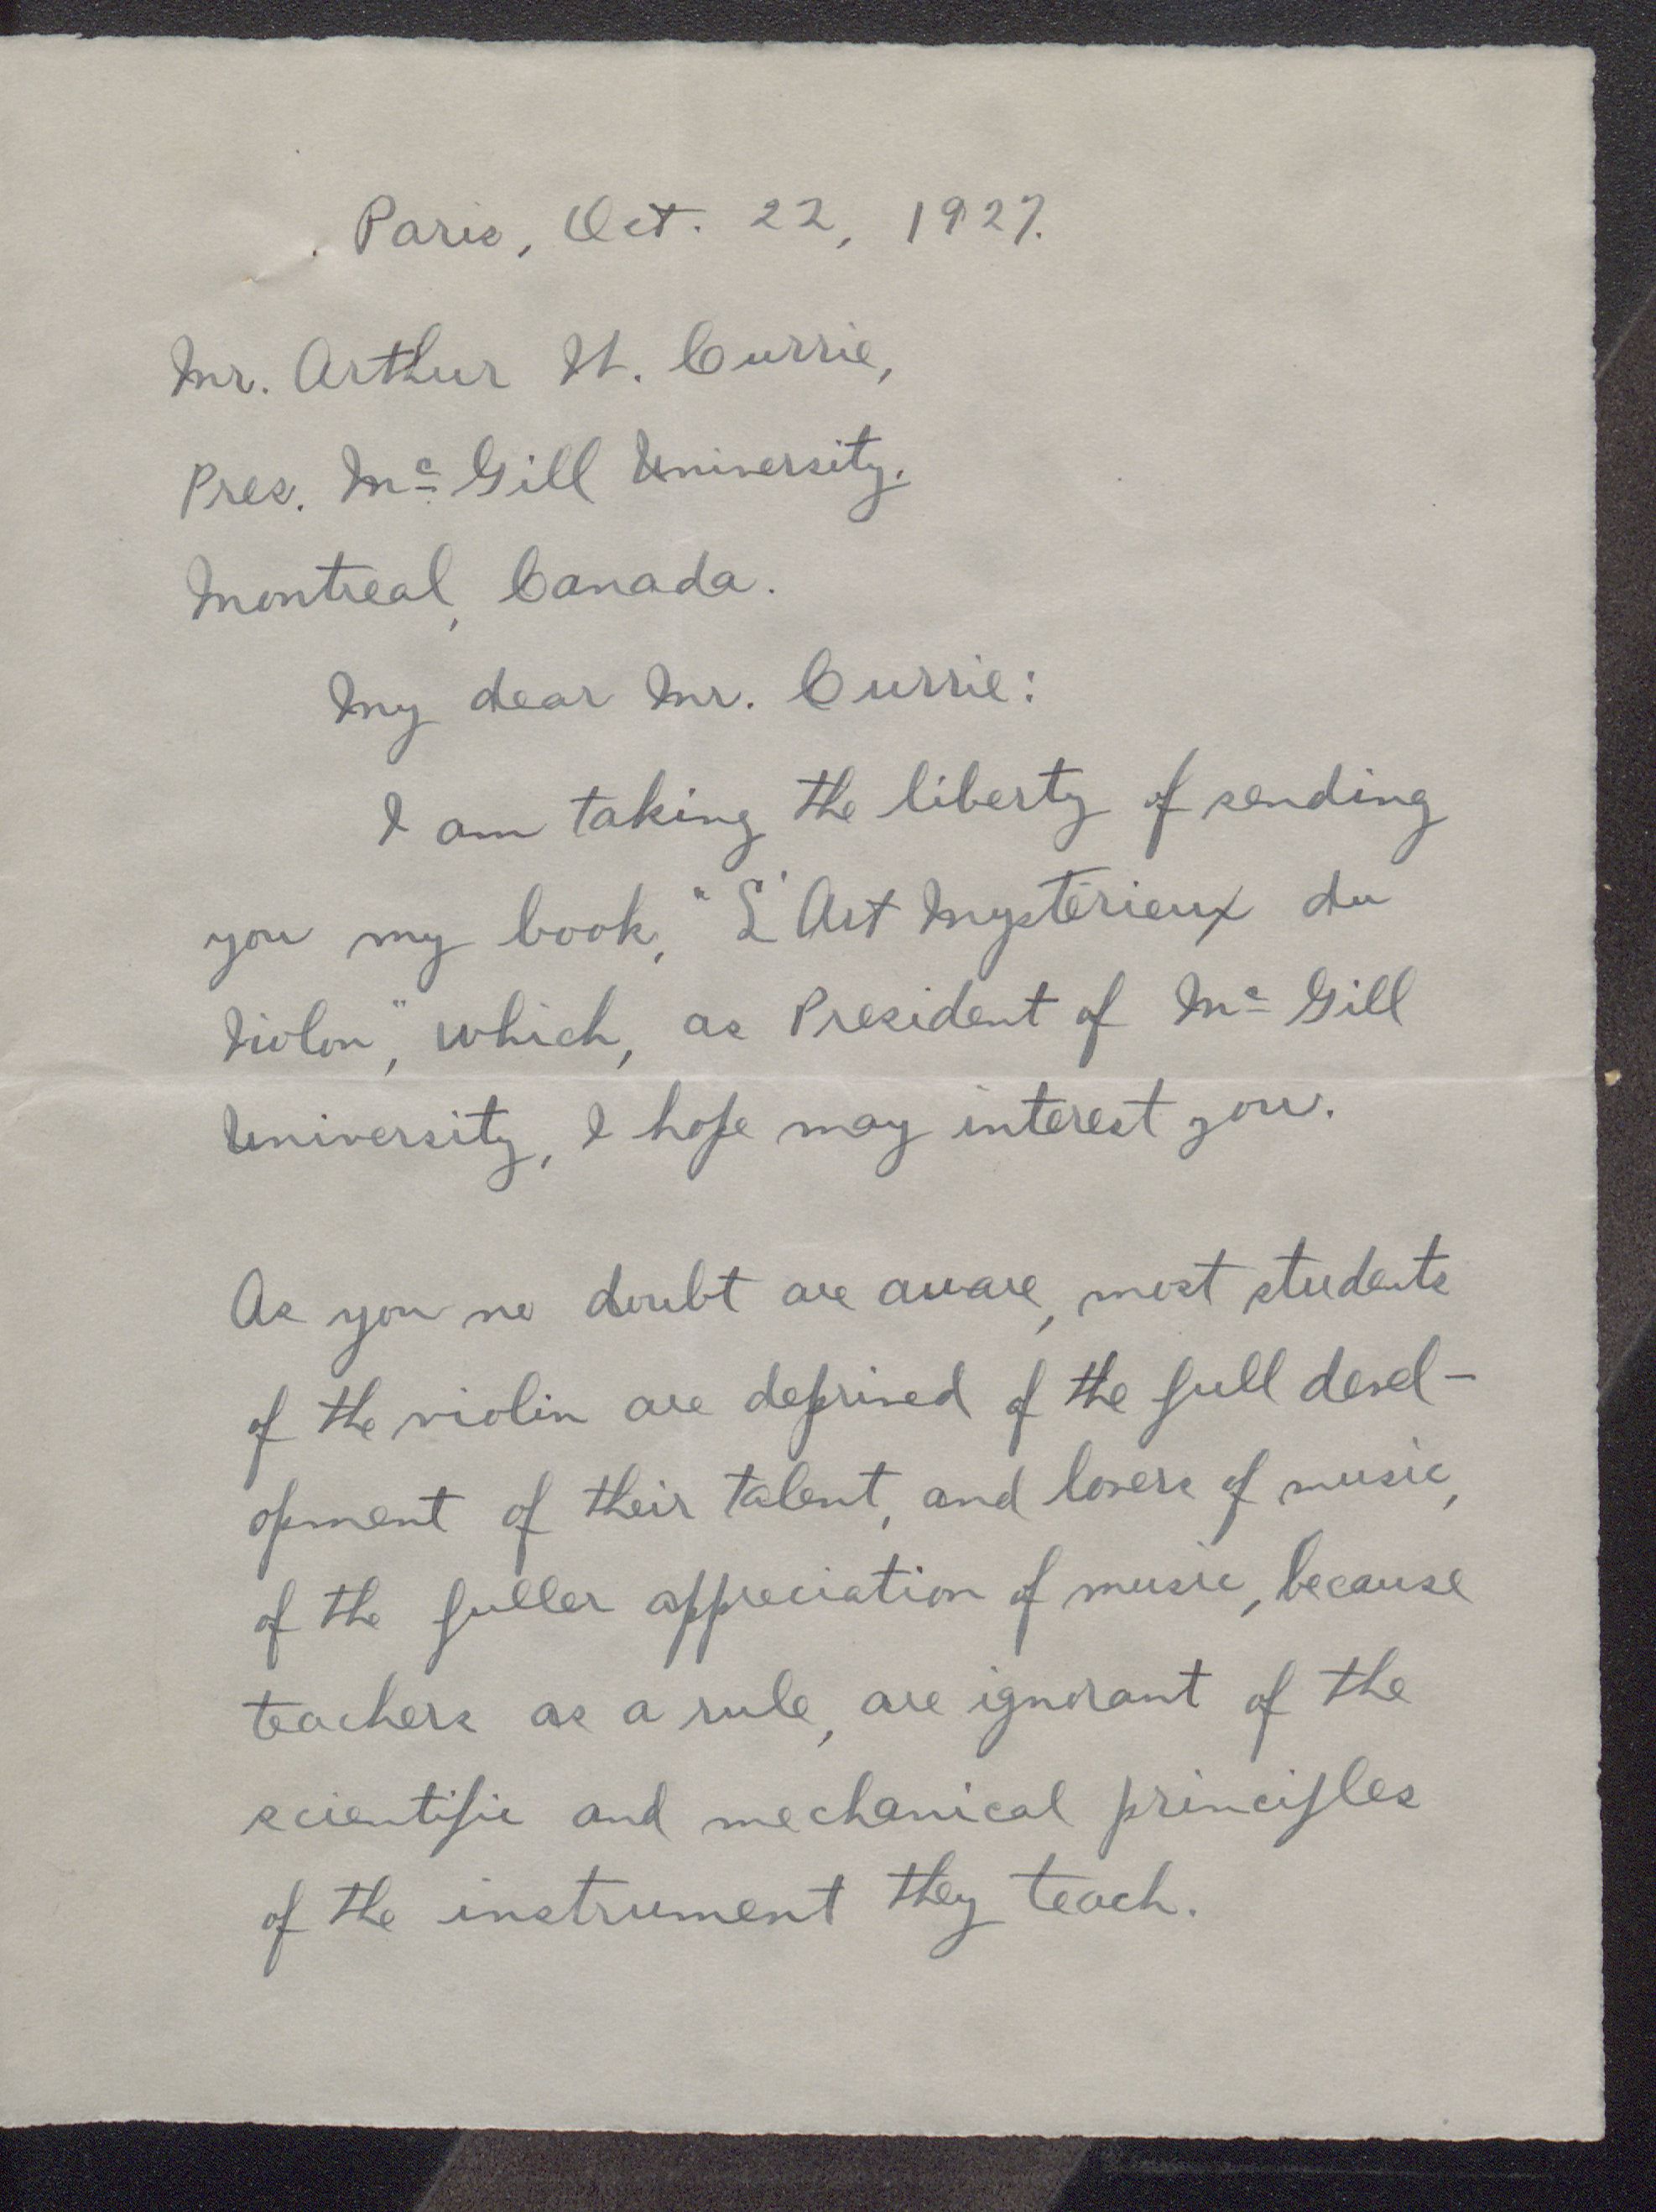 Paris, Oct. 22, 1927.
Mr. Arthur W. Currie,
Pres. Mc Gill University.
Montreal, Canada.
My dear Mr. Currie:
I am taking the liberty of sending
you my book, "L'Art Mystérieux du
Violon", which, as President of Mc Gill
University, I hope may interest you.
As you no doubt are aware, most students
of the violin are deprived of the full devel-
opment of their talent, and lovers of music,
of the fuller appreciation of music, because
teachers as a rule, are ignorant of the
scientific and mechanical principles
of the instrument they teach.